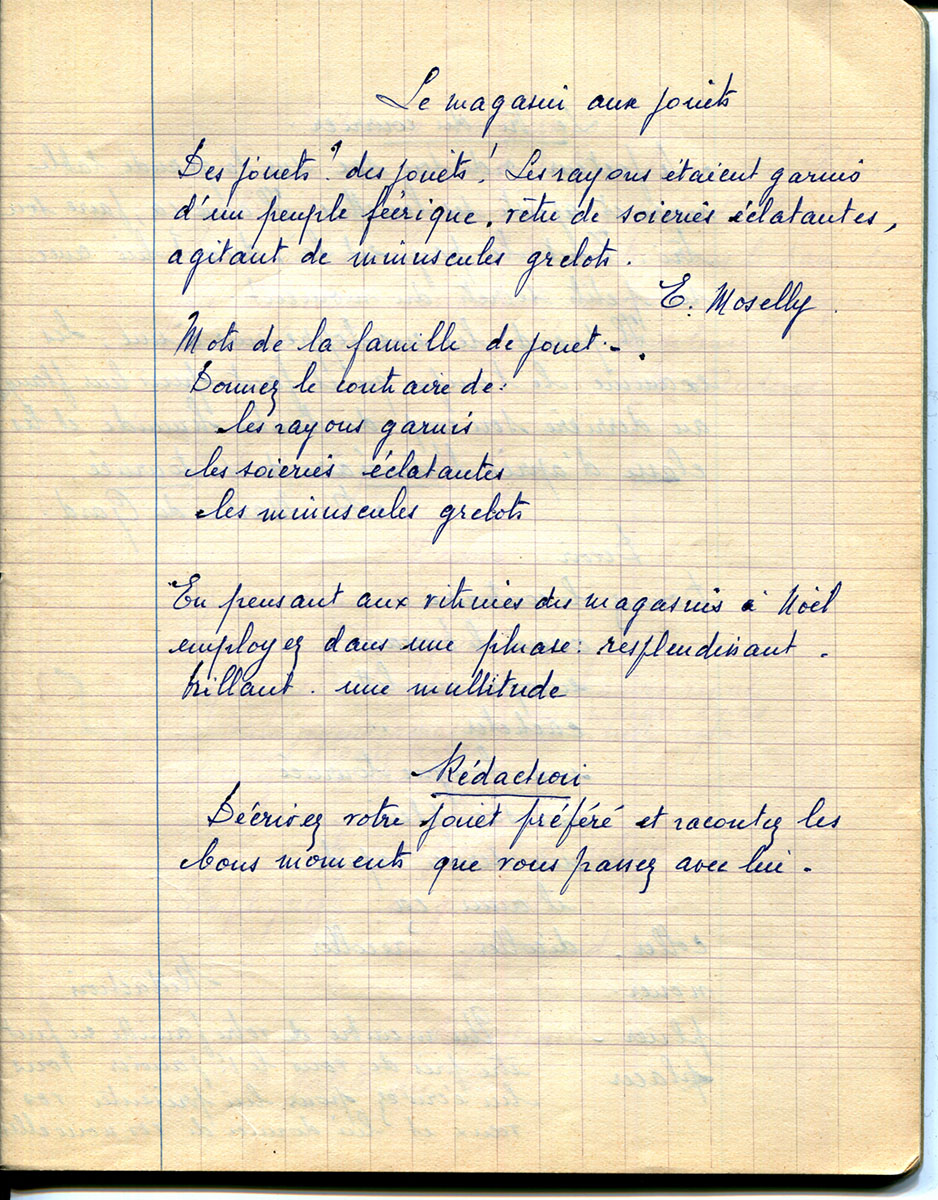 Le magasin aux jouets
Des jouets ! des jouets ! Les rayons étaient garnis
d'un peuple féerique, vêtu de soieries éclatantes,
agitant de minuscules grelots.
E. Moselly.
Mots de la famille de jouet :-.
Donnez le contraire de :
les rayons garnis
les soieries éclatantes
les minuscules grelots
En pensant aux vitrines des magasins à Noël
employez dans une phrase : resplendissant -
brillant - une multitude
Rédaction
Décrivez votre jouet préféré et racontez les
bons moments que vous passez avec lui.